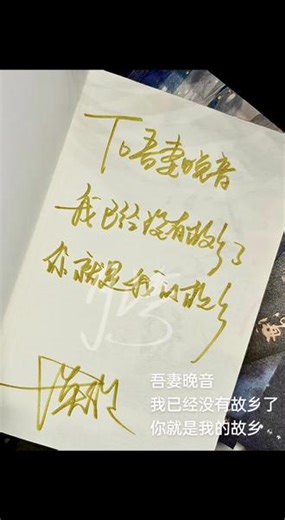 To吾妻晚音
我已经没有故乡了
你就是我的故乡
吾妻晚音
我已经没有故乡了
你就是我的故乡